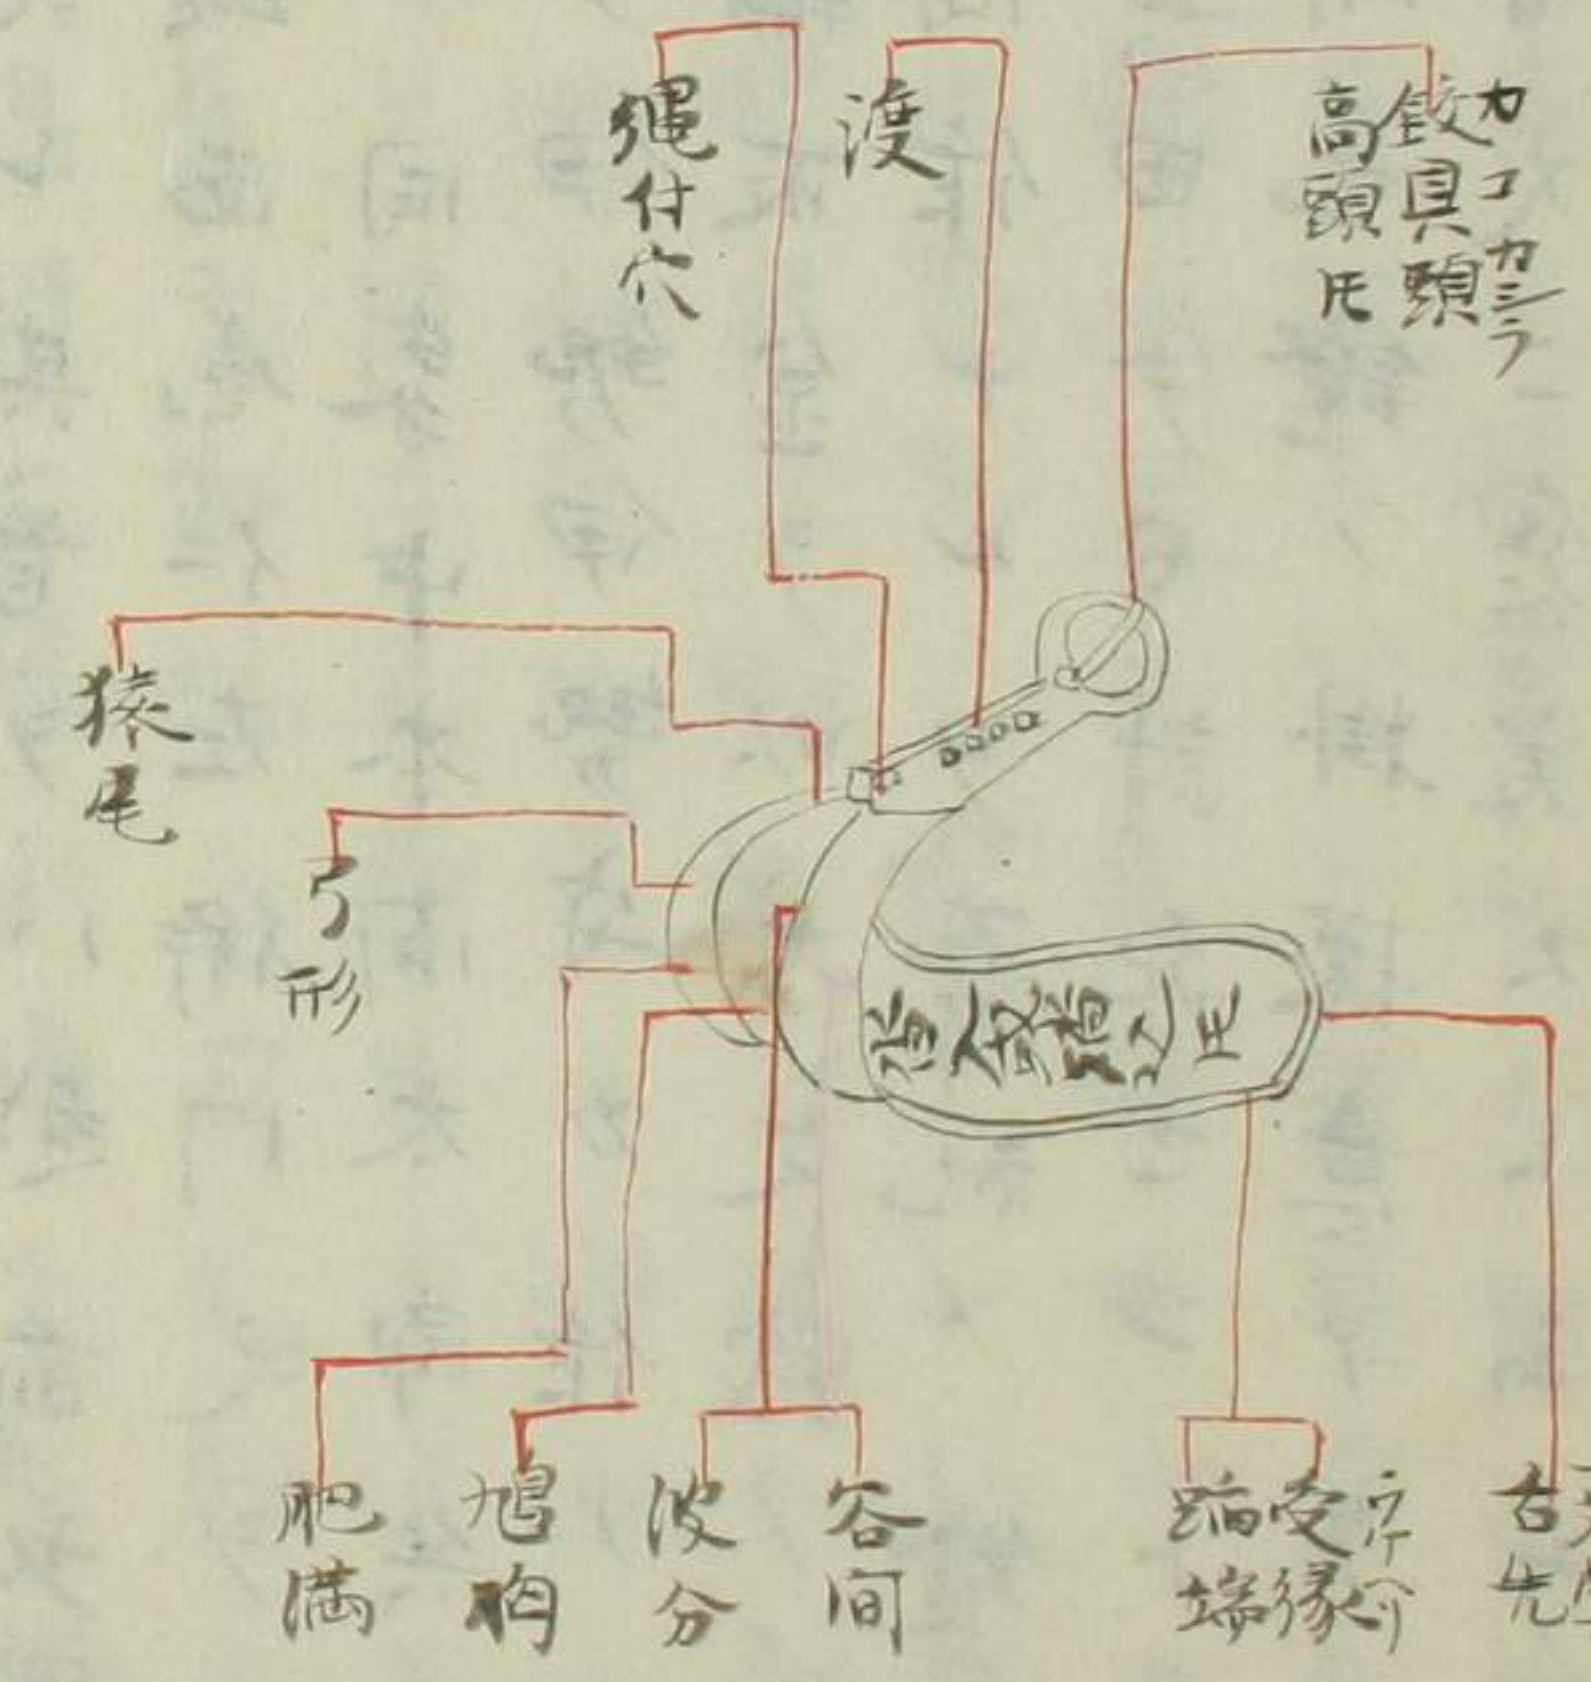 カコカシラ
鉸具頭
高頭氏
渡
縄付穴
猿尾
弓形
踏込氏
舌先
ウケヘリ
受縁
端
谷間
波分
鳩胸
肥満